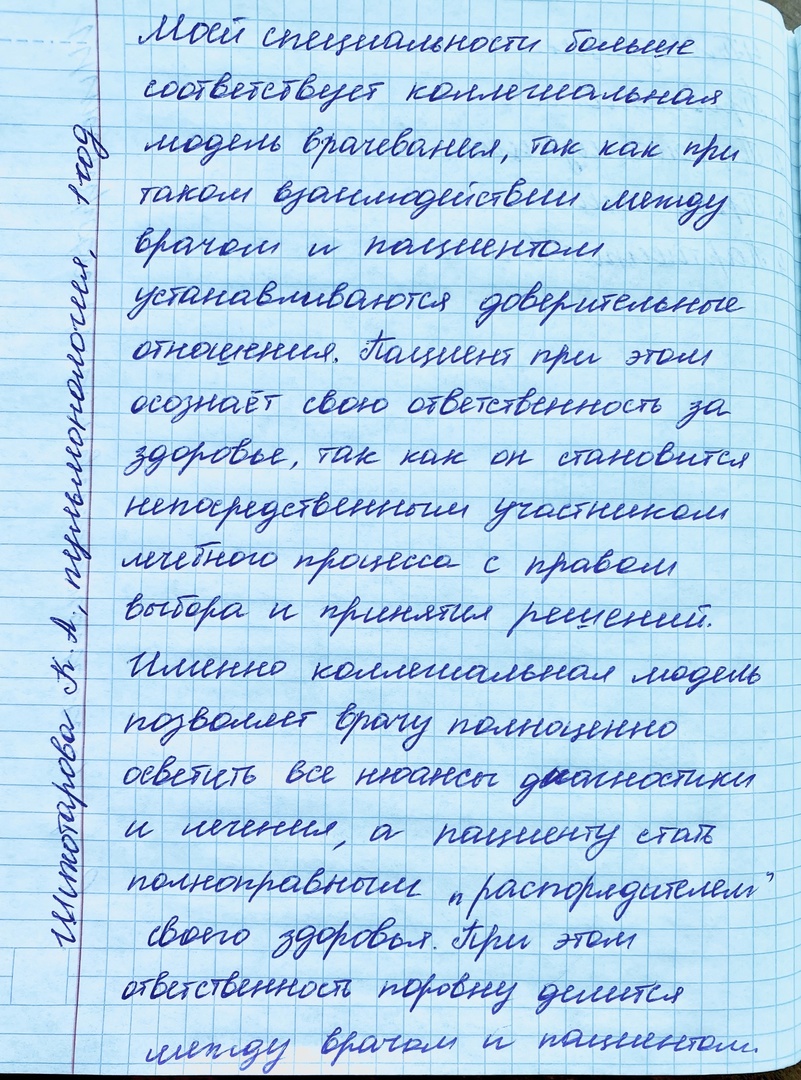 Моей специальности больше
соответствует коллегиальная
модель врачевания, так как при
таком взаимодействии между
врачом и пациентом
устанавливаются доверительные
отношения. Пациент при этом
осознаёт свою ответственность за
здоровье, так как он становится
непосредственным участником
лечебного процесса с правом
выбора и принятия решений.
Именно коллегиальная модель
позволяет врачу полноценно
осветить все нюансы диагностики
и лечения, а пациенту стать
полноправным „распорядителем"
своего здоровья. При этом
ответственность поровну делится
между врачом и пациентом.
К. А., пульмонология, 1 год